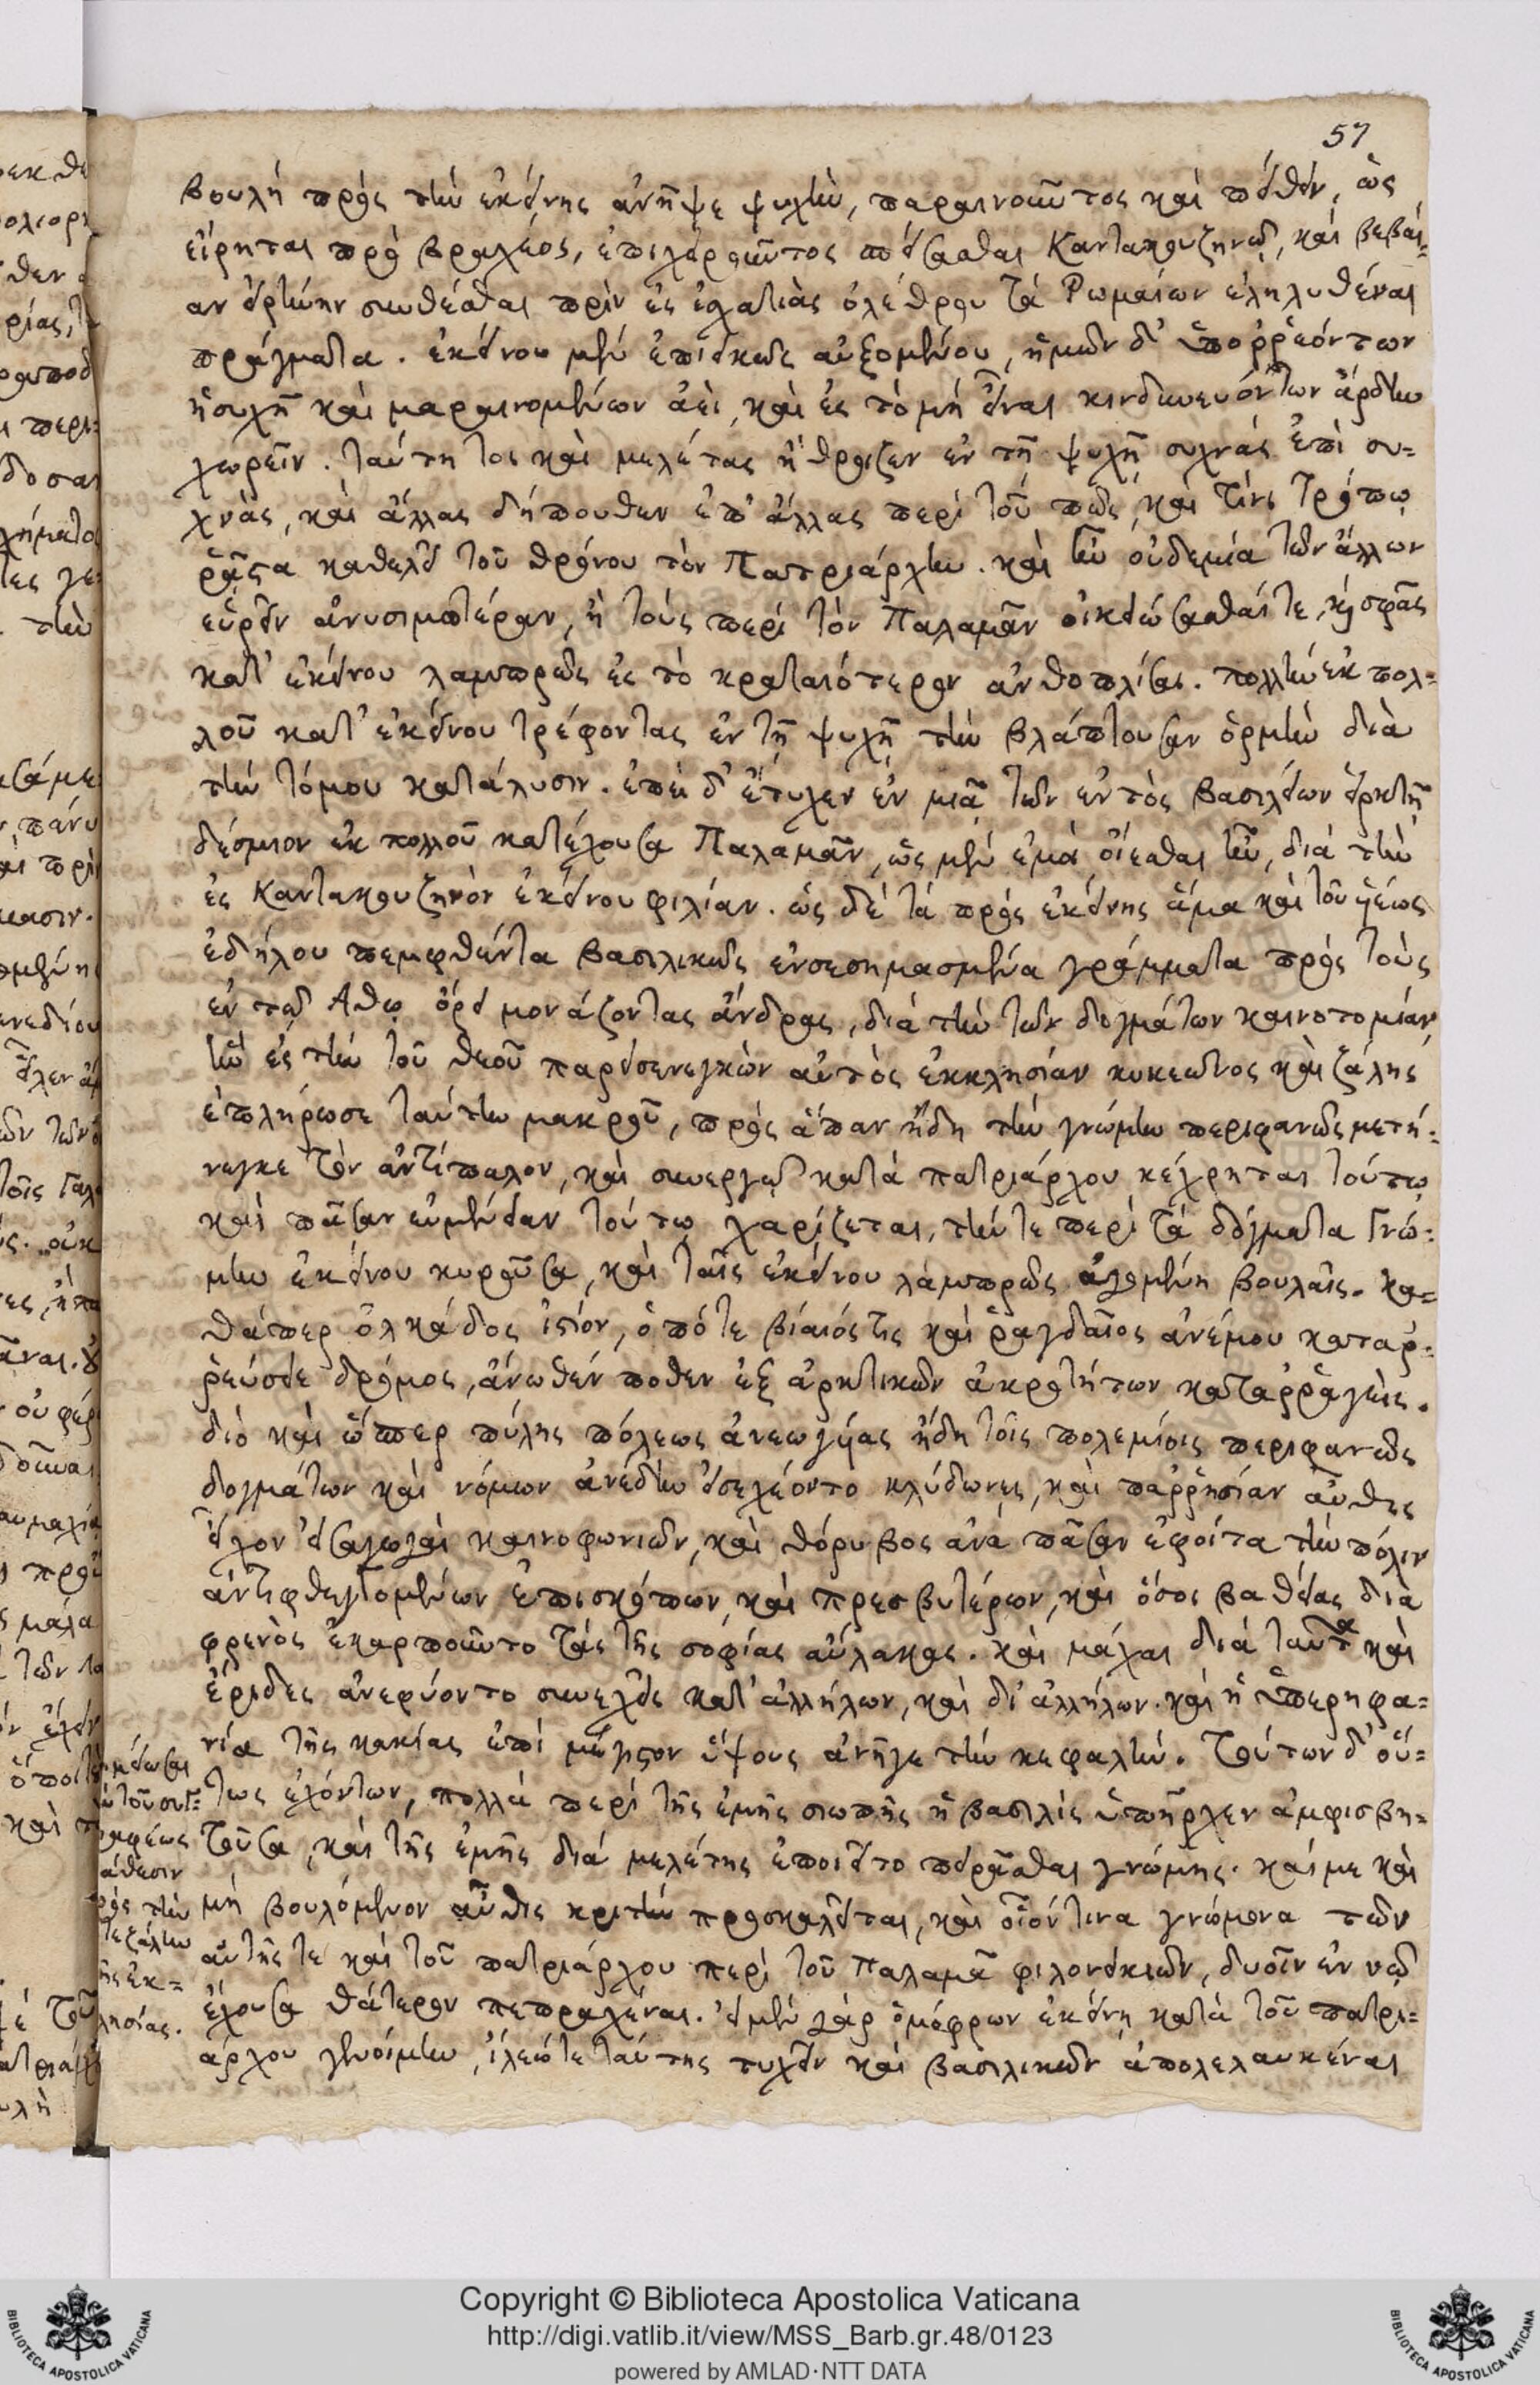 57
βουλὴ πρὸς τὴν ἐκείνης ἀνῆψε ψυχὴν, παραινοῦντος καὶ πείθειν, ὡς
εἴρηται πρὸ βραχέος, ἐπιχειροῦντος πείσασθαι Καντακουζηνῷ, καὶ βεβαί=
αν εἰρήνην συνθέσθαι πρὶν ἐς ἐσχατιὰς ὀλέθρου τὰ Ῥωμαίων ἐληλυθέναι
πράγματα. ἐκείνου μὲν ἐπιεικῶς αὐξομένου, ἡμῶν δ' ὑποῤῥεόντων
ἡσυχῆ καὶ μαραινομένων ἀεὶ, καὶ ἐς τὸ μὴ εἶναι κινδυνευόντων ἄρδην
χωρεῖν. ταύτη τοι καὶ μελέτας ἤθροιζεν ἐν τῇ ψυχῇ συχνὰς ἐπὶ συ=
χναῖς, καὶ ἄλλας δήπουθεν ἐπ' ἄλλαις περὶ τοῦ πῶς, καὶ τίνι τρόπῳ
ῥᾷστα καθελεῖ τοῦ θρόνου τὸν Πατριάρχην. καὶ ἦν οὐδεμία τῶν ἄλλων
εὑρεῖν ἀνυσιμωτέραν, ἢ τοὺς περὶ τὸν Παλαμᾶν οἰκειώσασθαί τε, καὶ σφᾶς
κατ' ἐκείνου λαμπρῶς ἐς τὸ κραταιότερον ἀνθοπλίσαι. πολλὴν ἐκ πολ=
λοῦ κατ' ἐκείνου τρέφοντας ἐν τῇ ψυχῇ τὴν βλάπτουσαν ὁρμὴν διὰ
τὴν τόμου κατάλυσιν. ἐπεὶ δ' ἔτυχεν ἐν μιᾷ τῶν ἐντὸς βασιλείων εἱρκτῇ
δέσμιον ἐκ πολλοῦ κατέχουσα Παλαμᾶν, ὡς μὲν ἐμὰ οἴεσθαι ἦν, διὰ τὴν
ἐς Καντακουζηνὸν ἐκείνου φιλίαν. ὡς δὲ τὰ πρὸς ἐκείνης ἅμα καὶ τοῦ υἱέως
ἐδήλου πεμφθέντα βασιλικῶς ἐνσεσημασμένα γράμματα πρὸς τοὺς
ἐν τῷ Ἄθῳ ὄρει μονάζοντας ἄνδρας, διὰ τὴν τῶν δογμάτων καινοτομίαν
ἣν ἐς τὴν τοῦ θεοῦ παρεισενεγκὼν αὐτὸς ἐκκλησίαν κυκεῶνος καὶ ζάλης
ἐπλήρωσε ταύτην μακροῦ, πρὸς ἅπαν ἤδη τὴν γνώμην περιφανῶς μετή=
νεγκε τὸν ἀντίπαλον, καὶ συνεργῷ κατὰ πατριάρχου κέχρηται τούτῳ
καὶ πᾶσαν εὐμένειαν τούτῳ χαρίζεται, τήν τε περὶ τὰ δόγματα γνώ=
μην ἐκείνου κυροῦσα, καὶ ταῖς ἐκείνου λαμπρῶς ἀγομένη βουλαῖς. κα=
θάπερ ὁλκάδος ἱστίον, ὁπότε βίαιός τις καὶ ῥαγδαῖος ἀνέμου καταῤ=
ῥεύσειε δρόμος, ἄνωθέν ποθεν ἐξ ἀρκτικῶν ἀκροτήτων καταῤῥαγείς.
διὸ καὶ ὥσπερ πύλης πόλεως ἀνεωγυίας ἤδη τοῖς πολεμίοις περιφανῶς
δογμάτων καὶ νόμων ἀνέδην εἰσεχέοντο κλύδωνες, καὶ παῤῥησίαν αὖθις
εἶχον εἰσαγωγαὶ καινοφωνιῶν, καὶ θόρυβος ἀνὰ πᾶσαν ἐφοίτα τὴν πόλιν
ἀντιφθεγγομένων ἐπισκόπων, καὶ πρεσβυτέρων, καὶ ὅσοι βαθείας διὰ
φρενὸς ἐκαρποῦντο τὰς τῆς σοφίας αὔλακας. καὶ μάχαι διὰ ταῦτα καὶ
ἔριδες ἀνεφύοντο συνεχεῖς κατ' ἀλλήλων, καὶ δι' ἀλλήλων. καὶ ἡ ὑπερηφα=
νία τῆς κακίας ἐπὶ μέγιστον ὕψους ἀνῆγε τὴν κεφαλήν. τούτων δ' οὕ=
τως ἐχόντων, πολλὰ περὶ τῆς ἐμῆς σιωπῆς ἡ βασιλὶς ὑπῆρχεν ἀμφισβη=
τοῦσα, καὶ τῆς ἐμῆς διὰ μελέτης ἐποιεῖτο πειρᾶσθαι γνώμης. καί με καὶ
μὴ βουλόμενον αὖθις κριτὴν προσκαλεῖται, καὶ οἷόν τινα γνώμονα τῶν
αὐτῆς τε καὶ τοῦ πατριάρχου περὶ τοῦ Παλαμᾶ φιλονεικιῶν, δυοῖν ἐν νῷ
ἔχουσα θάτερον πεπραχέναι. εἰ μὲν γὰρ ὁμόφρων ἐκείνῃ κατὰ τοῦ πατρι=
άρχου γενοίμην, ἵλεώ τε ταύτης τυχεῖν καὶ βασιλικῶν ἀπολελαυκέναι
Copyright © Biblioteca Apostolica Vaticana
http://digi.vatlib.it/view/MSS_Barb.gr.48/0123
powered by AMLAD·NTT DATA
BIBLIOTECA APOSTOLICA VATICANA
BIBLIOTECA APOSTOLICA VATICANA